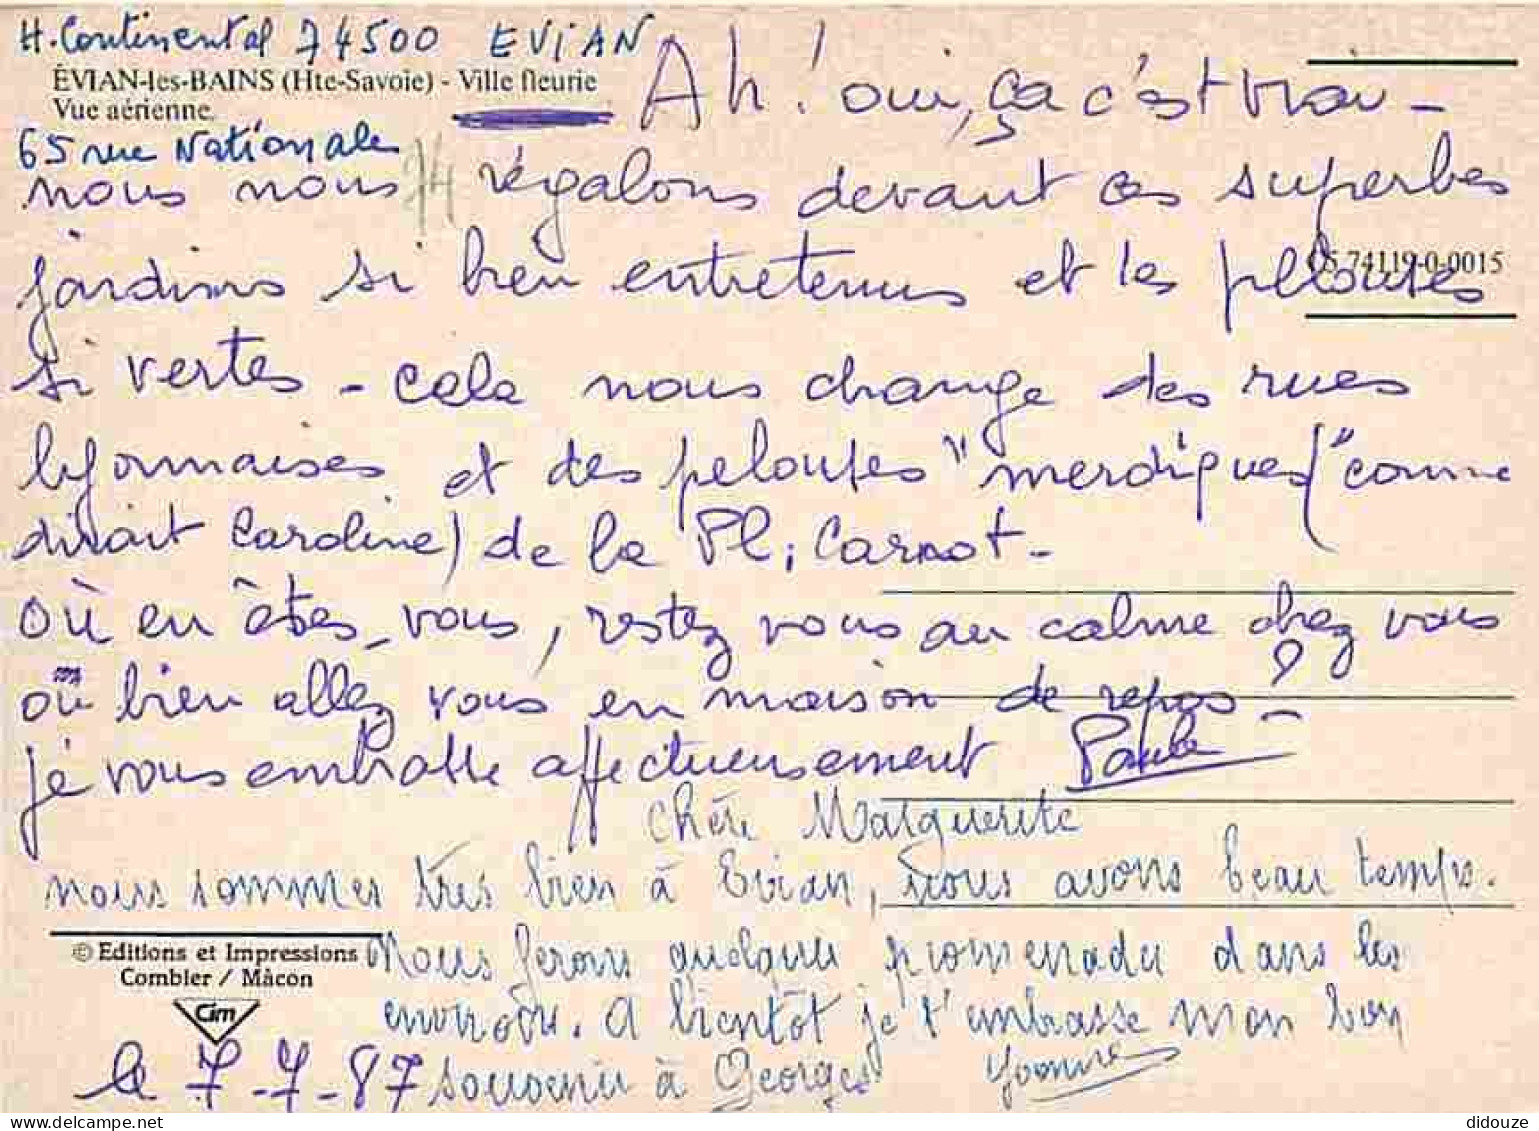 H. Continental 74500 EVIAN
ÉVIAN-les-BAINS (Hte-Savoie) - Ville fleurie
Vue aérienne.
65 rue Nationale
74
Ah! oui, ça c'est vrai -
nous nous régalons devant ces superbes
CS 74119-0-0015
jardins si bien entretenus et les pelouses
si vertes - cela nous change des rues
lyonnaises et des pelouses "merdiques" (comme
dirait Caroline) de la Pl. Carnot -
où en êtes-vous, restez vous au calme chez vous
ou bien allez vous en maison de repos ? -
je vous embrasse affectueusement Paule
Chère Marguerite
nous sommes très bien à Evian, nous avons beau temps.
Nous ferons quelques promenades dans les
environs. A bientôt je t'embrasse mon bon
souvenir à Georges Yvonne
© Editions et Impressions
Combier / Mâcon
Cim
le 7-7-87